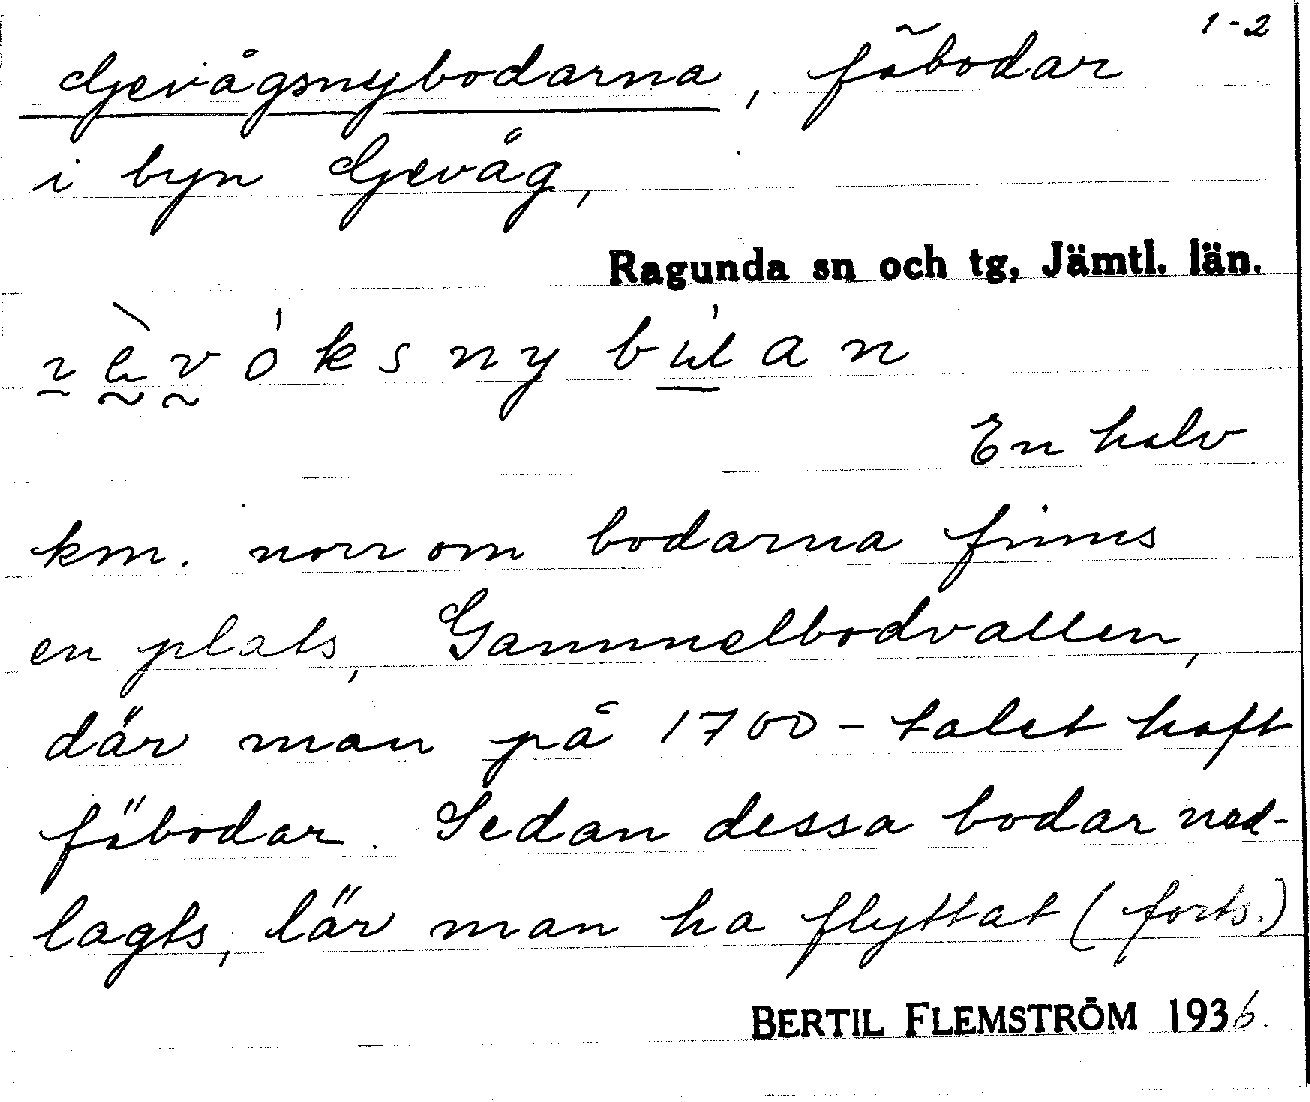 1-2
Gevågsnybodarna, fäbodar
i byn Gevåg,
Ragunda sn och tg, Jämtl. län.
En halv
km. norr om bodarna finns
en plats, Gammelbodvallen,
där man på 1700-talet haft
fäbodar. Sedan dessa bodar ned-
lagts, lär man ha flyttat (forts.)
BERTIL FLEMSTRÖM 1936.